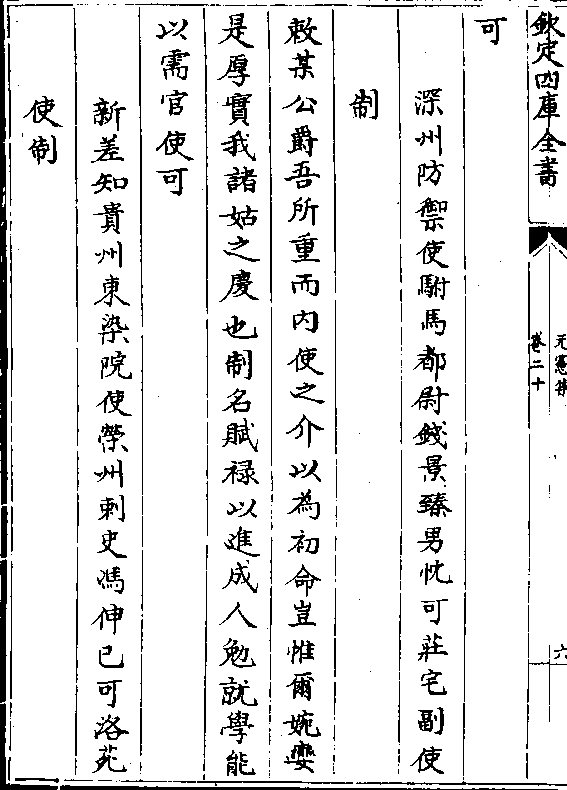 欽定四庫全書
元憲集
卷二十
六
可
深州防禦使駙馬都尉錢景臻男忱可莊宅副使
制
敕某公爵吾所重而内使之介以為初命豈惟爾婉孌
是厚實我諸姑之慶也制名賦禄以進成人勉就學能
以需官使可
新差知貴州東染院使榮州刺史馮伸已可洛苑
使制